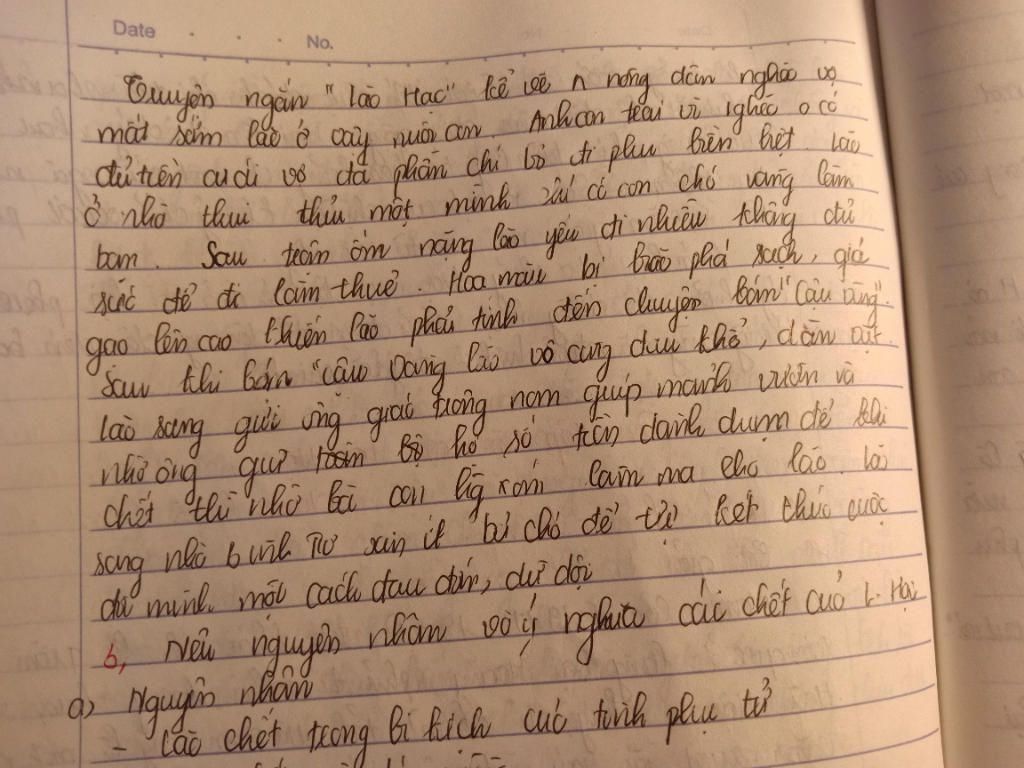 Date
No.
Truyện ngắn "Lão Hạc" kể về n nông dân nghèo vợ
mất sớm lão ở vậy nuôi con. Anh con trai vì nghèo o có
đủ tiền cưới vợ đã phẫn chí bỏ đi phu biền biệt. Lão
ở nhà thui thủi một mình chỉ có con chó vàng làm
bạn. Sau trận ốm nặng lão yếu đi nhiều không đủ
sức để đi làm thuê. Hoa màu bị bão phá sạch, giá
gạo lên cao khiến lão phải tính đến chuyện bán "cậu vàng".
Sau khi bán "cậu Vàng lão vô cùng đau khổ, dằn vặt.
lão sang gửi ông giáo trông nom giúp mảnh vườn và
nhờ ông giữ hộ số tiền dành dụm để khi
chết thì nhờ bà con lg xóm làm ma cho lão. lão
sang nhà Binh Tư xin ít bả chó để tự kết thúc cuộc
đời mình một cách đau đớn, dữ dội
6, Nêu nguyên nhân và ý nghĩa cái chết của L. Hạc
a) Nguyên nhân
- Lão chết trong bi kịch của tình phụ tử